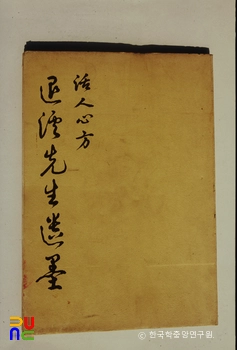 活人心方
退溪先生遺墨
© 한국학중앙연구원